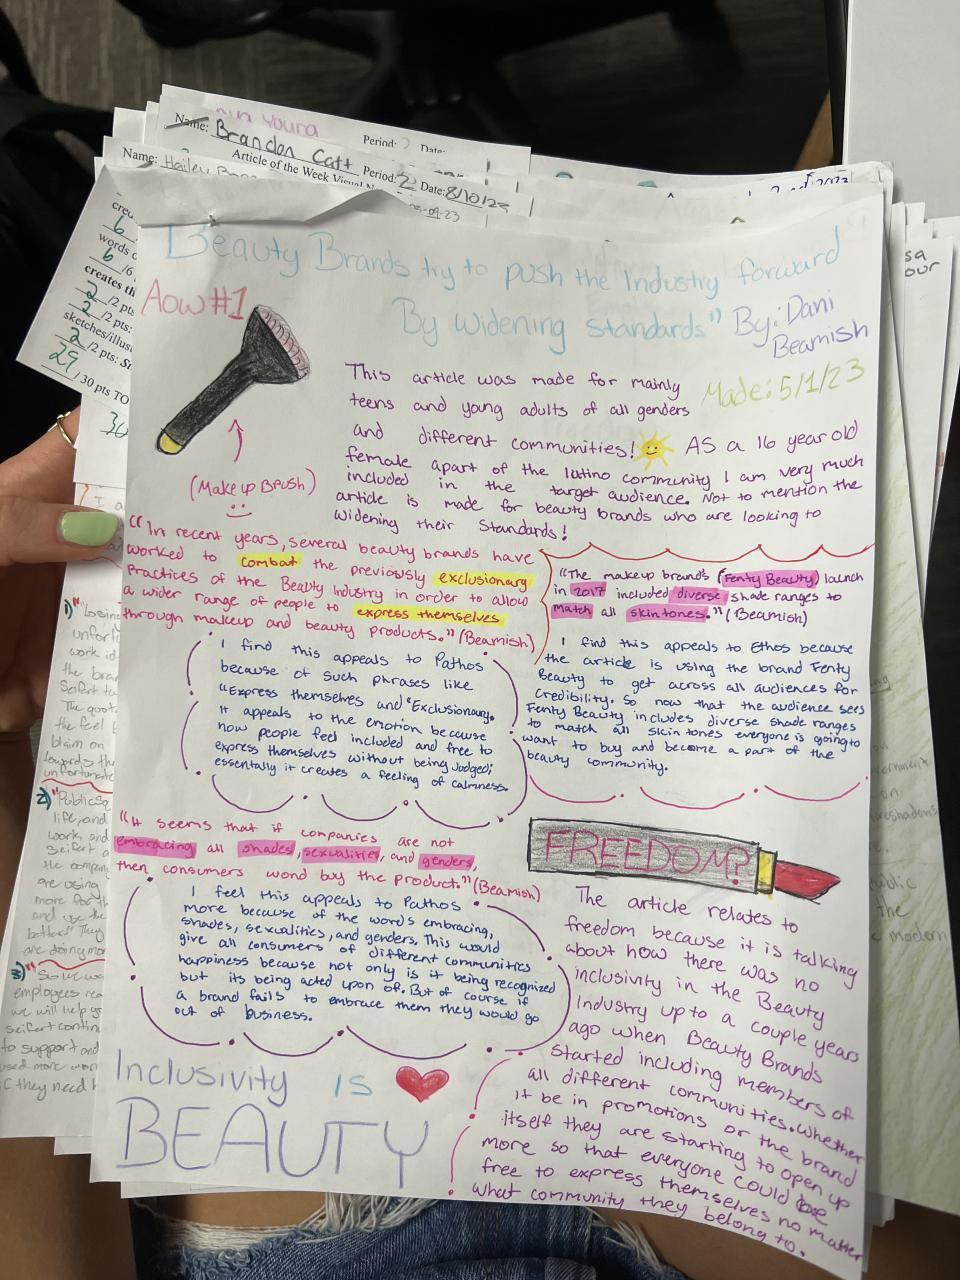 Name: Brandon Catt
Period: 2 Date: 8/10/23
Article of the Week Visual
Name: Hailey
Period:
Date:
words
6 /6
creates th
2 /2 pts
2 /2 pts:
sketches/illus
2 /2 pts:
29 / 30 pts TO
Beauty Brands try to push the Industry forward
By widening standards" By: Dani
Beamish
Aow #1
Made: 5/1/23
This article was made for mainly
teens and young adults of all genders
and different communities! As a 16 year old
female apart of the latino community I am very much
included in the target audience. Not to mention the
article is made for beauty brands who are looking to
widening their standards!
(Makeup Brush)
"In recent years, several beauty brands have
worked to combat the previously exclusionary
Practices of the Beauty Industry in order to allow
a wider range of people to express themselves
through makeup and beauty products." (Beamish)
I find this appeals to Pathos
because of such phrases like
"Express themselves and "Exclusionary.
It appeals to the emotion because
now people feel included and free to
express themselves without being Judged;
essentally it creates a feeling of calmness.
"The makeup brand's (Fenty Beauty) launch
in 2017 included diverse shade ranges to
match all skin tones." (Beamish)
I find this appeals to Ethos because
the article is using the brand Fenty
Beauty to get across all audiences for
Credibility. So now that the audience sees
Fenty Beauty includes diverse shade ranges
to match all skin tones everyone is going to
want to buy and become a part of the
beauty community.
"It seems that if companies are not
embracing all shades, sexualities, and genders,
then consumers wond buy the product." (Beamish)
I feel this appeals to Pathos
more because of the words embracing,
shades, sexualities, and genders. This would
give all consumers of different communities
happiness because not only is it being recognized
but its being acted upon of. But of course if
a brand fails to embrace them they would go
out of business.
FREEDOM?
The article relates to
freedom because it is talking
about how there was no
inclusivity in the Beauty
Industry up to a couple years
ago when Beauty Brands
started including members of
all different communities. Whether
it be in promotions or the brand
itself they are starting to open up
more so that everyone could be
free to express themselves no matter
what community they belong to.
Inclusivity is
BEAUTY